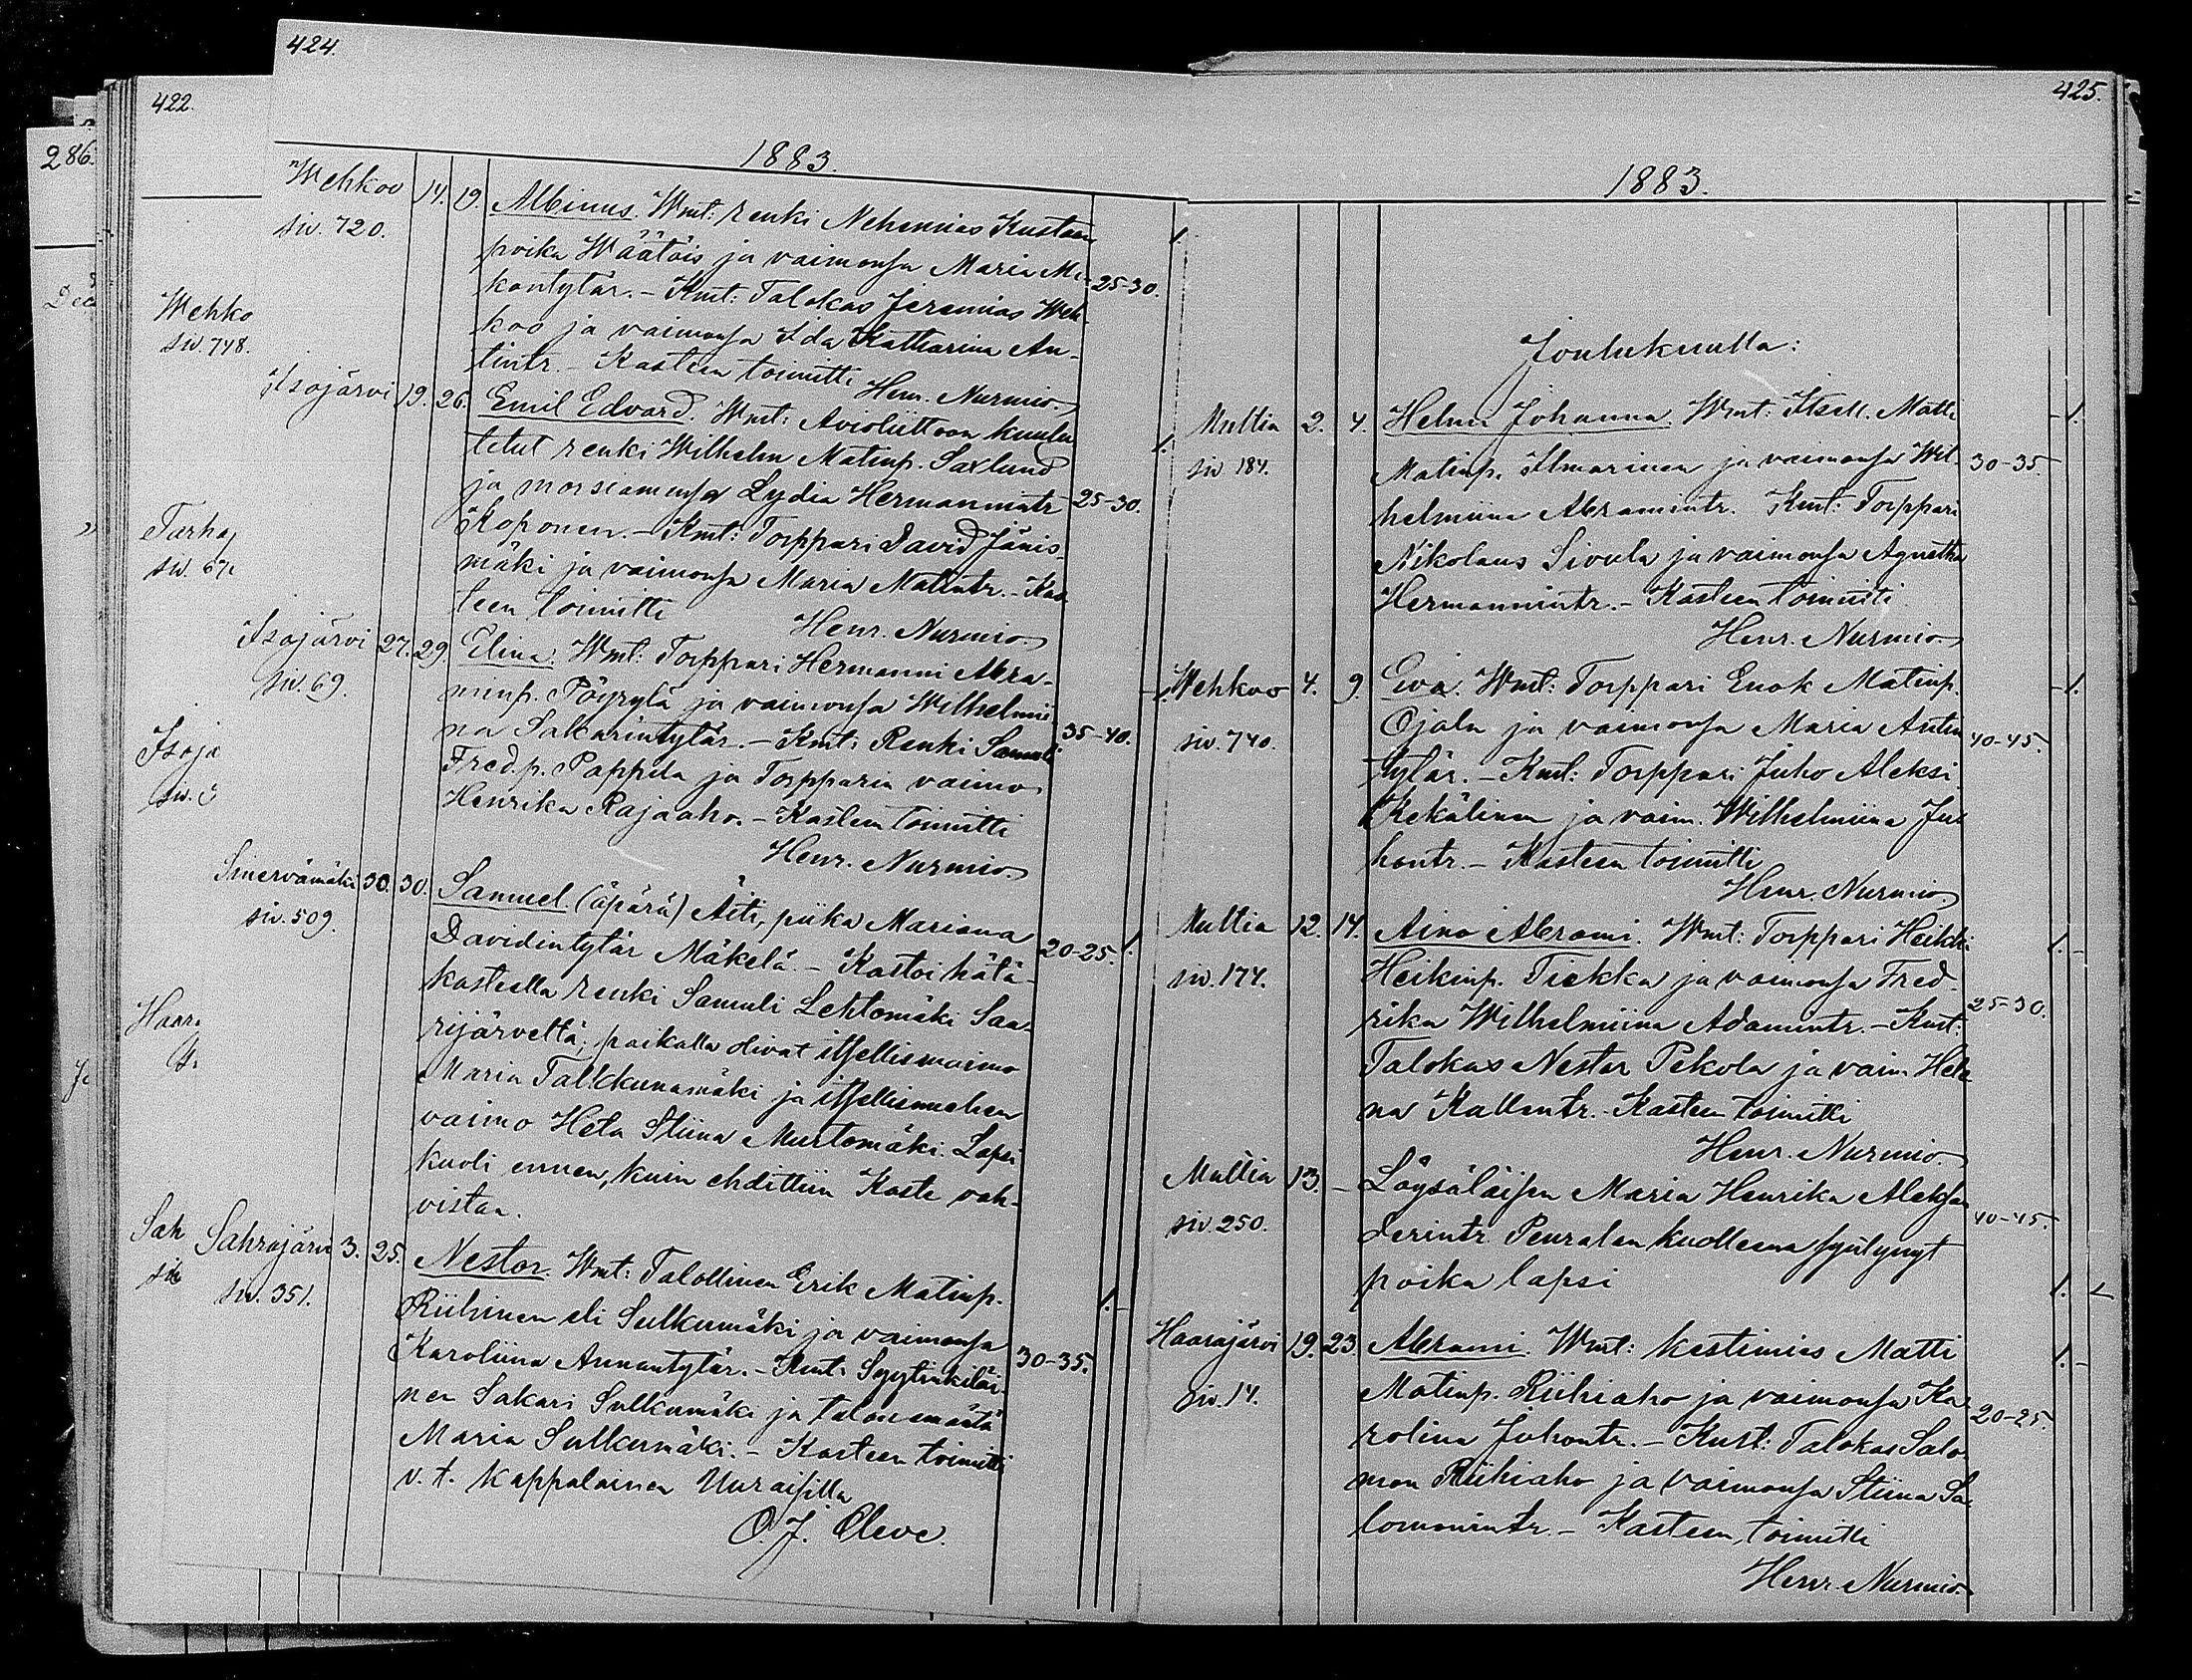 424.
1883.
Wehkoo 14. 19. Albinus. Wmt: renki Nehemias Kustaan
siv. 720. poika Wäätäis ja vaimonsa Maria Mi- 25-30. 1.
kontytär. - Kmt: Talokas Jeremias Weh-
koo ja vaimonsa Ida Katharina An-
tintr. - Kasteen toimitti
Henr. Nurmio.
Isojärvi 19. 26. Emil Edvard. Wmt: Avioliittoon kuulu
tetut renki Wilhelm Matinp. Saxlund 1.
ja morsiamensa Lydia Hermannintr 25-30.
Koponen. - Kmt: Torppari David Jänis-
mäki ja vaimonsa Maria Matintr. - Kas
teen toimitti
Henr. Nurmio
Isojärvi 27. 29. Elina. Wmt: Torppari Hermanni Abra-
siv. 69. minp. Pöyrylä ja vaimonsa Wilhelmii
na Sakarintytär. - Kmt: Renki Samuli 35-40. 1.
Fred.p. Pappila ja Torpparin vaimo
Henrika Rajaaho. - Kasteen toimitti
Henr. Nurmio.
Sinervämäki 30. 30. Samuel. (äpärä) Äiti, piika Mariana
siv. 509. Davidintytär Mäkelä. - Kastoi hätä- 20-25. 1.
kasteella renki Samuli Lehtomäki Saa-
rijärveltä; paikalla olivat itsellisvaimo
Maria Talkkunamäki ja itsellismiehen
vaimo Heta Stiina Murtomäki. Lapsi
kuoli ennen, kuin ehdittiin Kaste vah-
vistaa.
Sahrajärvi 3. 25. Nestor. Wmt: Talollinen Erik Matinp.
siv. 351. Riihinen eli Sulkumäki ja vaimonsa 1.
Karoliina Annantytär. - Kmt: Syytinkiläi- 30-35.
nen Sakari Sulkumäki ja talon emäntä
Maria Sulkumäki. - Kasteen toimitti
v. t. Kappalainen Uuraisilla
O. J. Cleve.
422.
Wehko
siv. 748.
Tarha
siv. 67
Isojä
siv.
Haara
Sah
siv
286.
Dec
425.
1883.
Joulukuulla:
Multia 2. 4. Helma Johanna. Wmt: Itsell. Matti 1.
siv 184. Matinp. Ilmarinen ja vaimonsa Wil- 30-35
helmiina Abramintr. Kmt: Torppari
Nikolaus Sivula ja vaimonsa Agnetha
Hermannintr. - Kasteen toimitti
Henr. Nurmio
Wehkoo 4. 9. Eva. Wmt: Torppari Enok Matinp. 1.
siv. 740. Ojala ja vaimonsa Maria Antin 40-45.
tytär. - Kmt: Torppari Juho Aleksi
Kekälinen ja vaim. Wilhelmiina Ju-
hontr. - Kasteen toimitti
Henr. Nurmio
Multia 12. 14. Aino Abrami. Wmt: Torppari Heikki 1.
siv. 174. Heikinp. Tiekka ja vaimonsa Fred-
rika Wilhelmiina Adamintr. - Kmt: 25-30.
Talokas Nestor Pekola ja vaim. Hele
na Kallentr. - Kasteen toimitti
Henr. Nurmio.
Multia 13. - Löysäläisen Maria Henrika Aleksan
siv 250. derintr. Peuralan kuolleena syntynyt 40-45.
poika lapsi 1.
Haarajärvi 19. 23. Abrami. Wmt: kestimies Matti 1.
siv. 14. Matinp. Riihiaho ja vaimonsa Ka- 20-25
rolina Juhontr. - Kmt: Talokas Salo-
mon Riihiaho ja vaimonsa Stiina Sa-
lomonintr. - Kasteen toimitti
Henr. Nurmio.